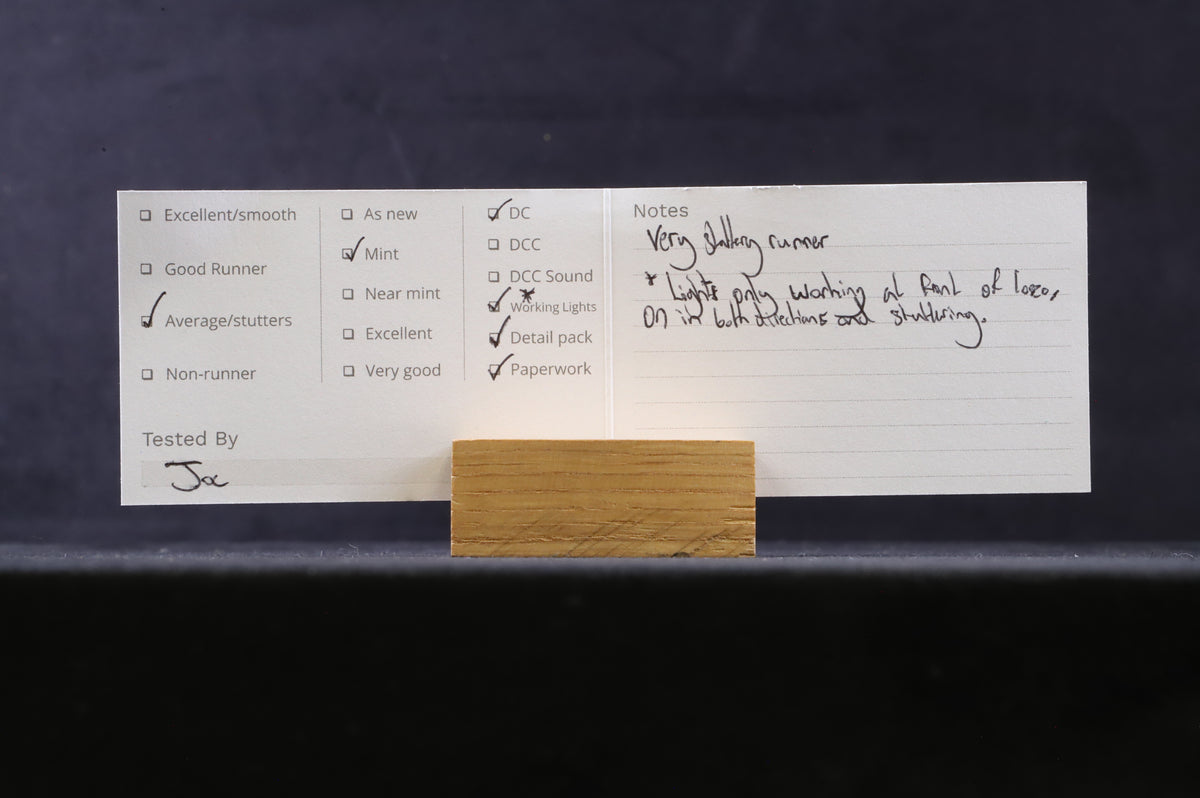 Excellent/smooth
Good Runner
Average/stutters
Non-runner
As new
Mint
Near mint
Excellent
Very good
DC
DCC
DCC Sound
*
Working Lights
Detail pack
Paperwork
Tested By
Joe
Notes
Very stuttery runner
* Lights only working at front of loco,
on in both directions and stuttering.